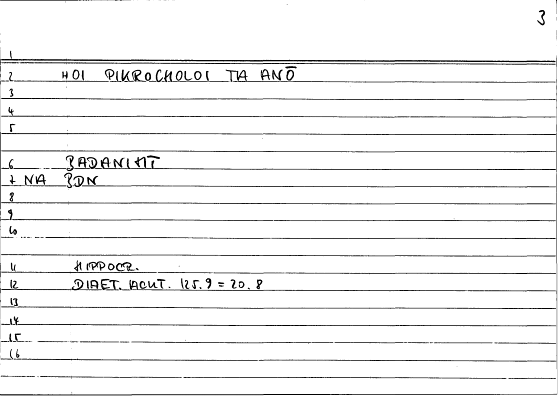 3
1
2 HOI PIKROCHOLOI TA ANŌ
3
4
5
6 BADANIHT
7 NA BDN
8
9
10
11 HIPPOCR.
12 DIAET. ACUT. 125.9 = 20.8
13
14
15
16